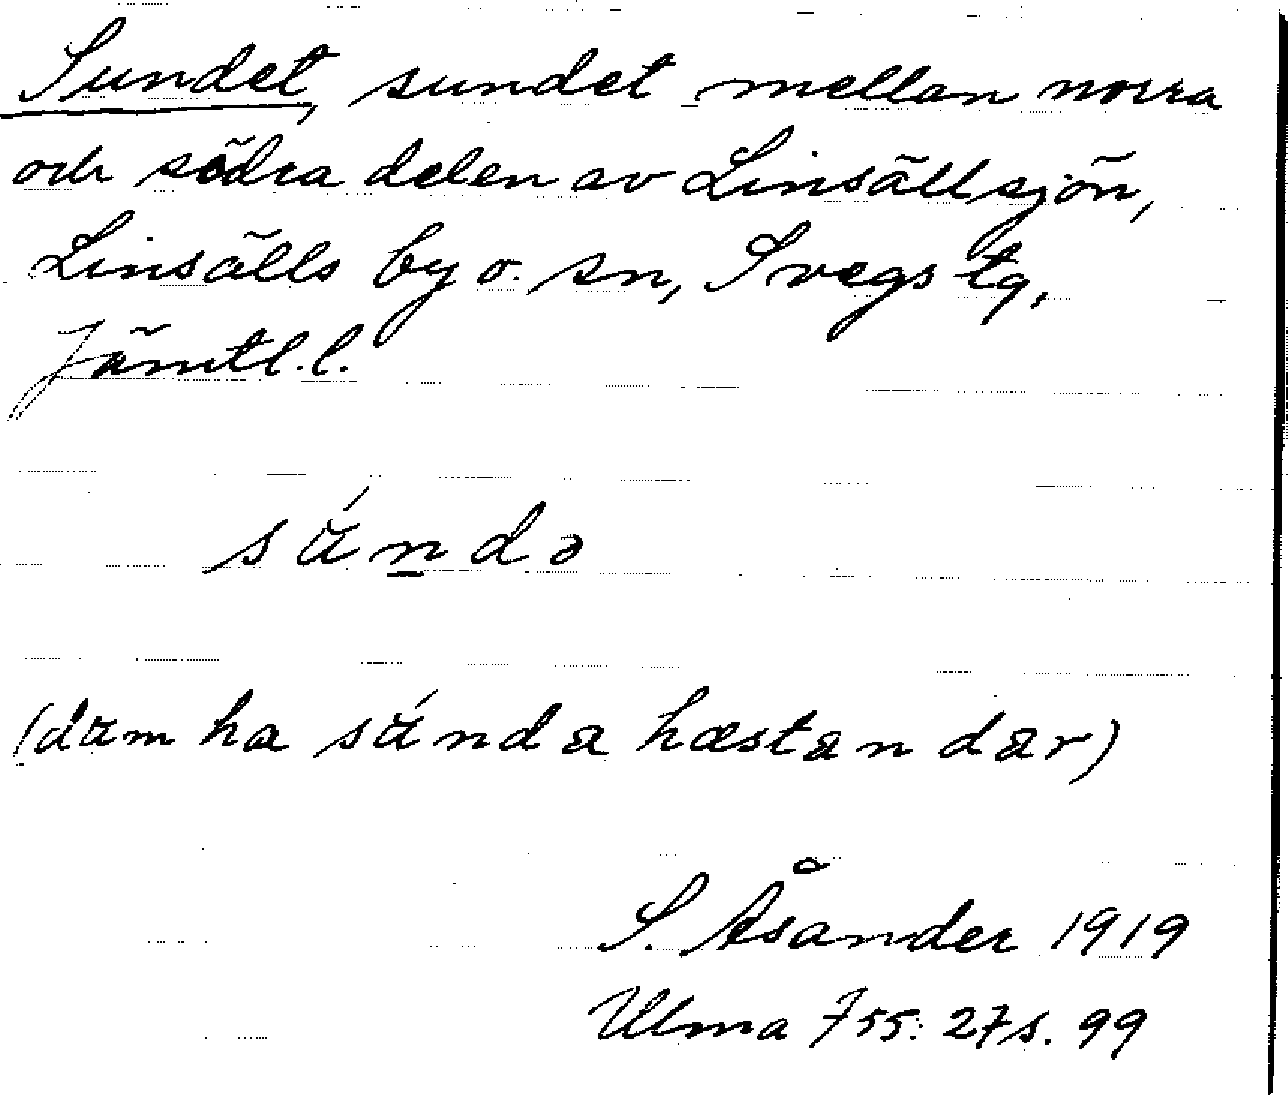 Sundet, sundet mellan norra
och södra delen av Linsällsjön,
Linsälls by o. sn, Svegs tg,
Jämtl. l.
sándə
(dam ha sánda hæstan dar)
S. Åsander 1919
Ulma 755: 27 s. 99